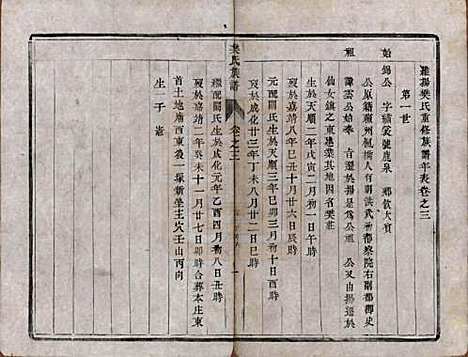 維揚樊氏重修族譜年表卷之三
第一世
始
祖
錫公 字 補裘 號 鹿泉 鄉飲大賓
公原籍蘇州楓橋人有明洪武初都察院右副都御史
諱雲公始奉 旨遷於揚爲公祖 公又由揚遷於
仙女鎮之東建業其地因名樊莊
生於天順二年戊寅二月初一日午時
歿於嘉靖八年己丑十月廿六日辰時
元配 氏生於天順三年己卯三月初十日酉時
歿於成化廿三年丁未八月廿二日巳時
樊氏族譜
卷之三
一
繼配 氏生於成化元年乙酉四月初八日丑時
歿於嘉靖二年癸未十一月廿七日卯時合葬本庄東
首土地廟西東後一塚新坐主穴壬山丙向
生一子 嵩